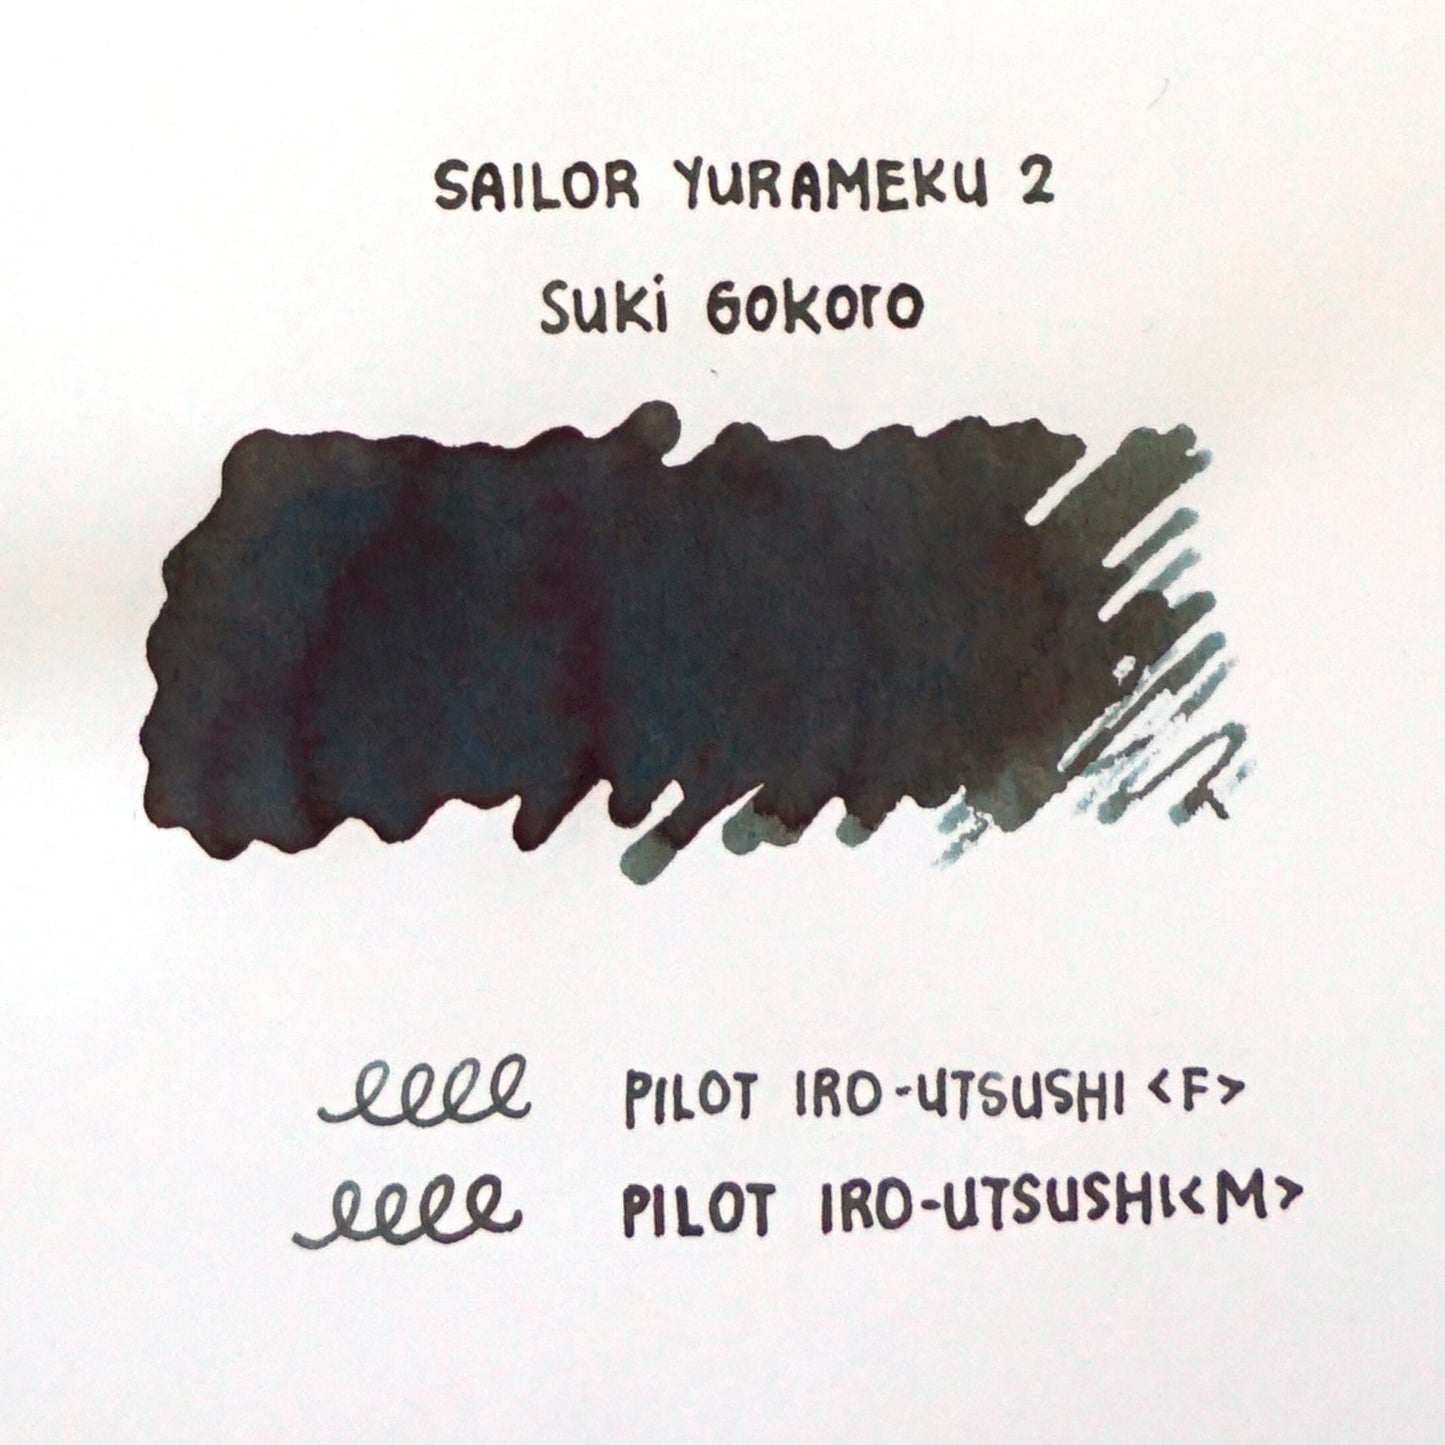 SAILOR YURAMEKU 2
Suki Gokoro
eeee PILOT IRO-UTSUSHI <F>
eeee PILOT IRO-UTSUSHI <M>